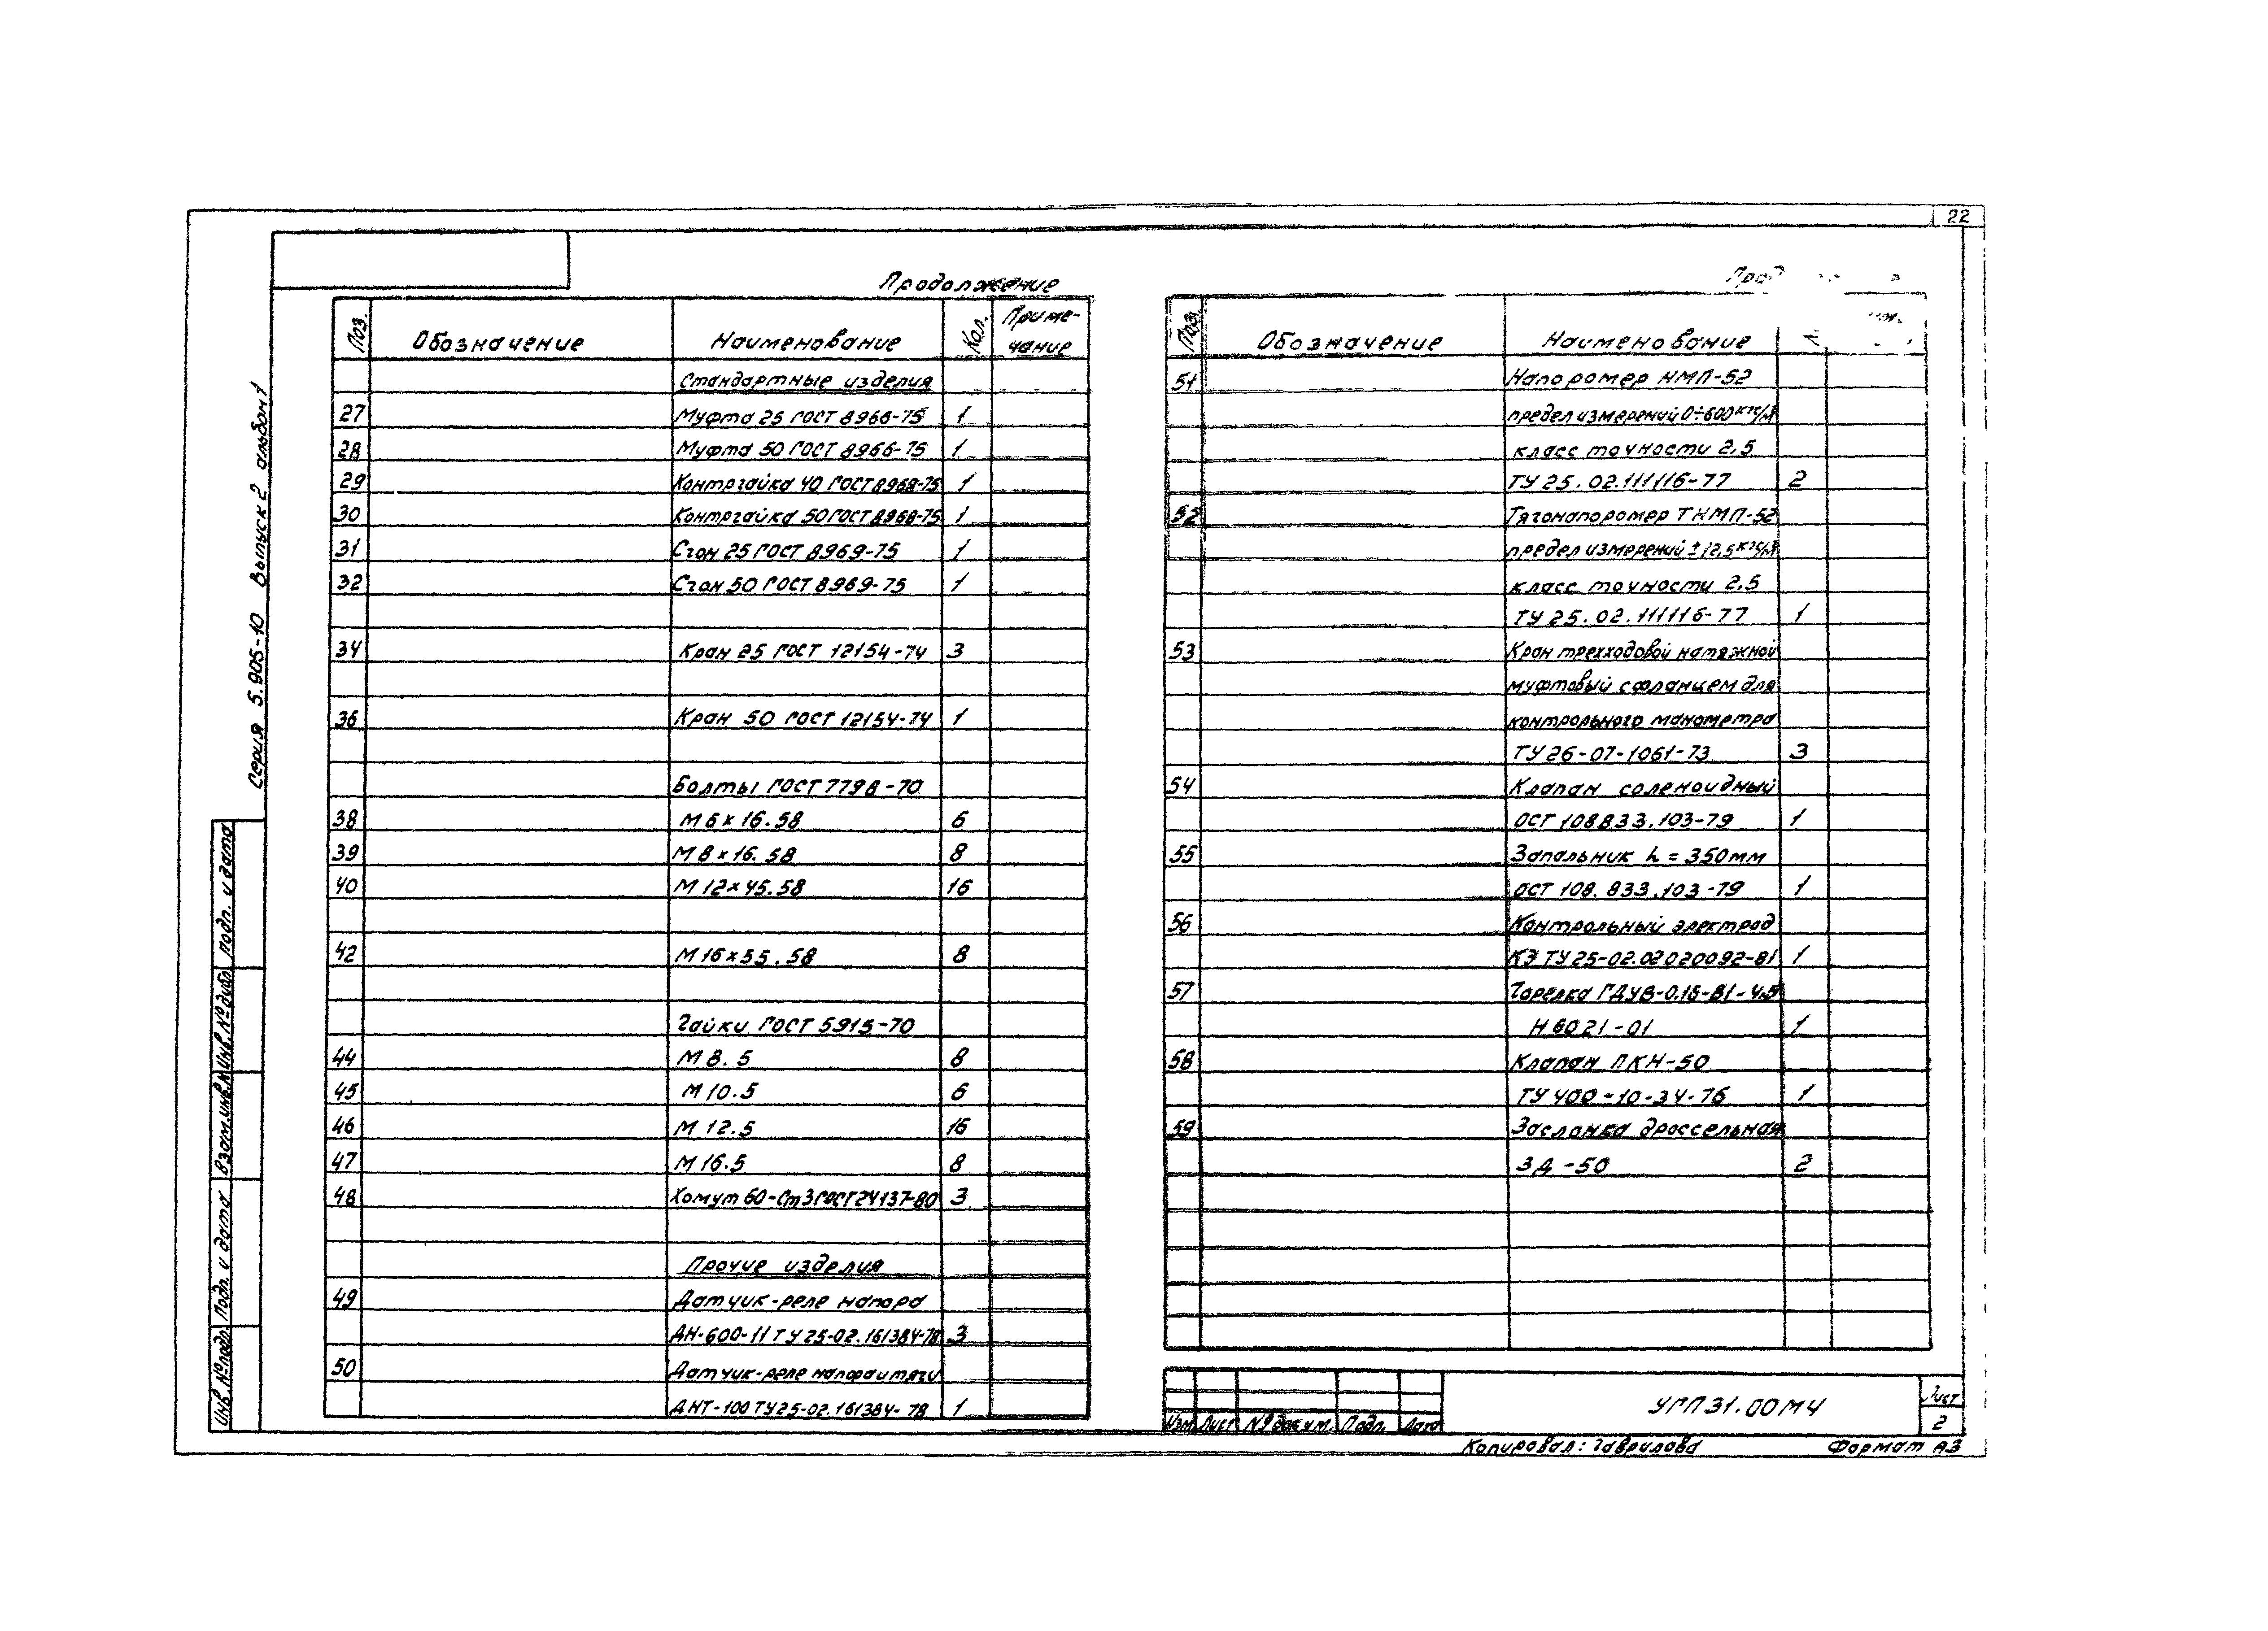 22
Серия 5.905-10 Выпуск 2 альбом 1
Продолжение
Поз. Обозначение Наименование Кол. Приме-
чание
Стандартные изделия
27 Муфта 25 ГОСТ 8966-75 1
28 Муфта 50 ГОСТ 8966-75 1
29 Контргайка 40 ГОСТ 8968-75 1
30 Контргайка 50 ГОСТ 8968-75 1
31 Сгон 25 ГОСТ 8969-75 1
32 Сгон 50 ГОСТ 8969-75 1
34 Кран 25 ГОСТ 12154-74 3
36 Кран 50 ГОСТ 12154-74 1
Болты ГОСТ 7798-70
38 М 6 х 16.58 6
39 М 8 х 16.58 8
40 М 12 х 45.58 16
42 М 16 х 55.58 8
Гайки ГОСТ 5915-70
44 М 8.5 8
45 М 10.5 6
46 М 12.5 16
47 М 16.5 8
48 Хомут 60-Ст3 ГОСТ 24137-80 3
Прочие изделия
49 Датчик-реле напора
ДН-600-11 ТУ 25-02.161384-78 3
50 Датчик-реле напора и тяги
ДНТ-100 ТУ 25-02.161384-78 1
Поз. Обозначение Наименование
51 Напоромер НМП-52
предел измерений 0÷600 кгс/м²
класс точности 2,5
ТУ 25.02.111116-77 2
52 Тягонапоромер ТНМП-52
предел измерений ±12,5 кгс/м²
класс точности 2,5
ТУ 25.02.111116-77 1
53 Кран трехходовой натяжной
муфтовый с фланцем для
контрольного манометра
ТУ 26-07-1061-73 3
54 Клапан соленоидный
ОСТ 108833.103-79 1
55 Запальник h = 350 мм
ОСТ 108.833.103-79 1
56 Контрольный электрод
КЭ ТУ 25-02.02020092-81 1
57 Горелка ГДУВ-0,18-В1-4,5
Н 6021-01 1
58 Клапан ПКН-50
ТУ 400-10-34-76 1
59 Заслонка дроссельная
ЗД-50 2
Инв.№ подл. Подп. и дата Взам.инв.№ Инв.№ дубл. Подп. и дата
Изм. Лист № докум. Подп. Дата
УГП31.00МЧ
Лист
2
Копировал: Гаврилова Формат А3